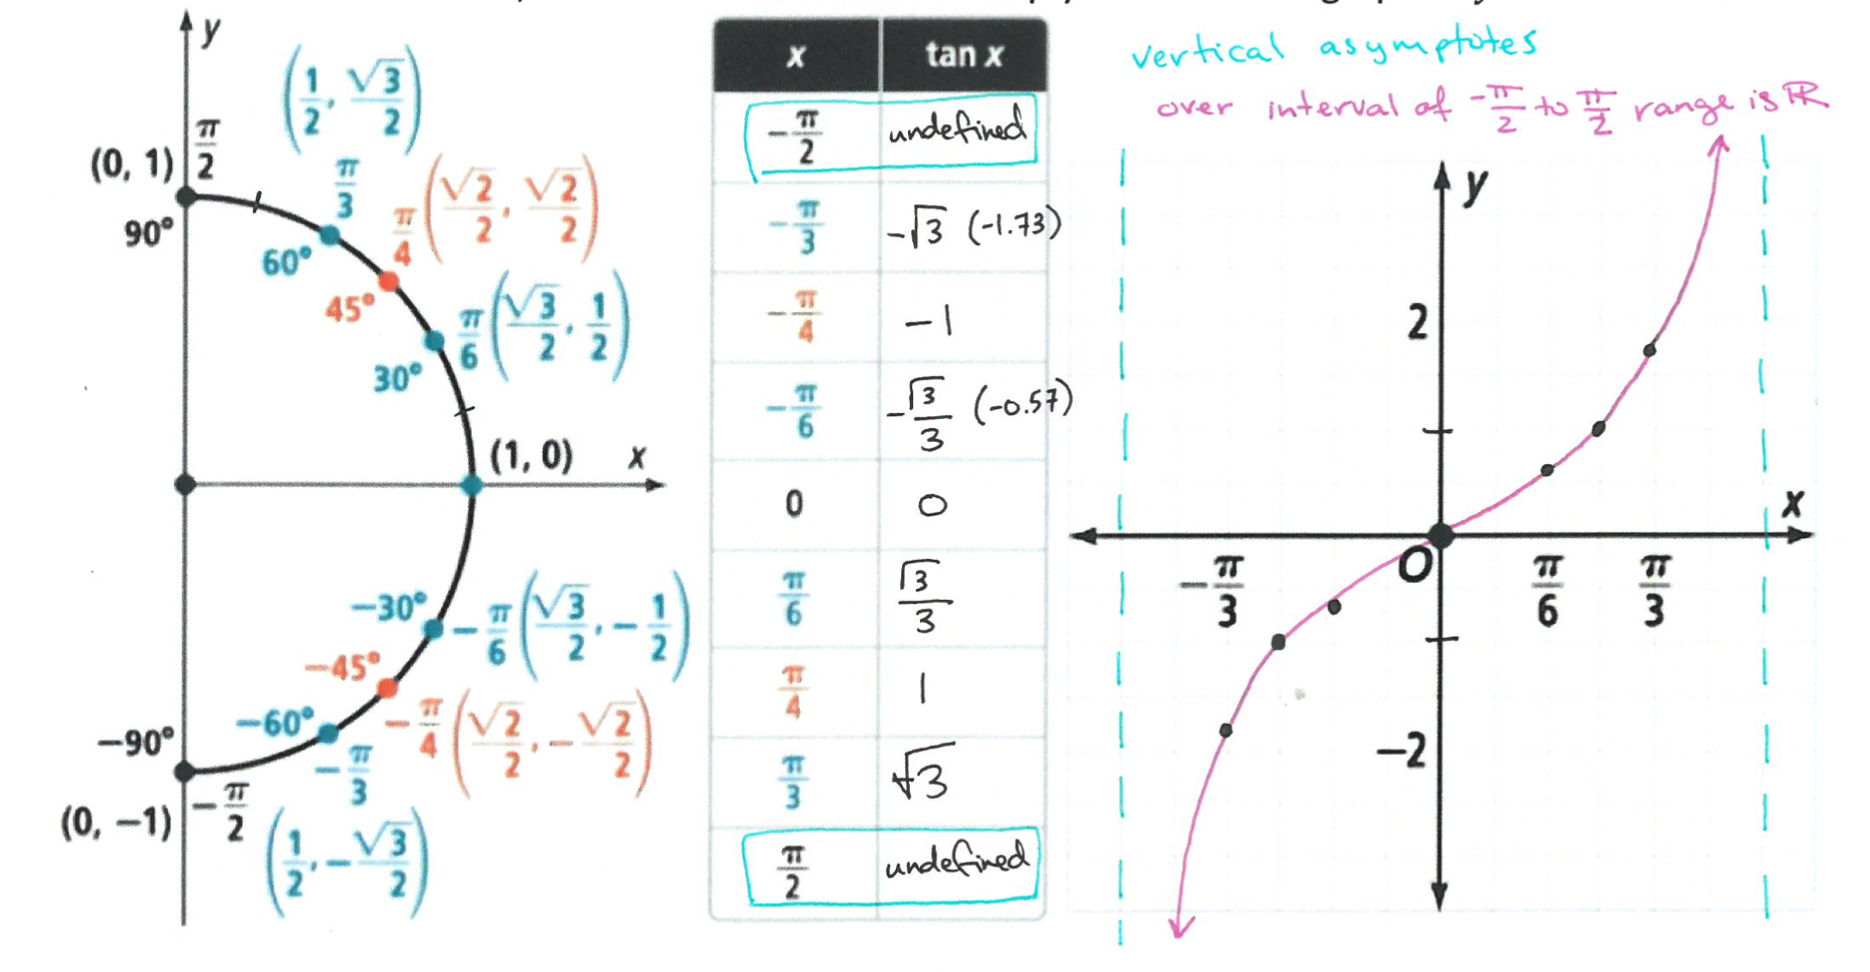 y
(1/2, √3/2)
π/2
(0, 1)
π/3
π/4 (√2/2, √2/2)
90°
60°
45°
π/6 (√3/2, 1/2)
30°
(1, 0)
x
-30°
-π/6 (√3/2, -1/2)
-45°
-π/4 (√2/2, -√2/2)
-60°
-π/3
-90°
(0, -1)
-π/2
(1/2, -√3/2)
x tan x
-π/2 undefined
-π/3 -√3 (-1.73)
-π/4 -1
-π/6 -√3/3 (-0.57)
0 0
π/6 √3/3
π/4 1
π/3 √3
π/2 undefined
vertical asymptotes
over interval of -π/2 to π/2 range is ℝ
y
2
x
O
-π/3 π/6 π/3
-2